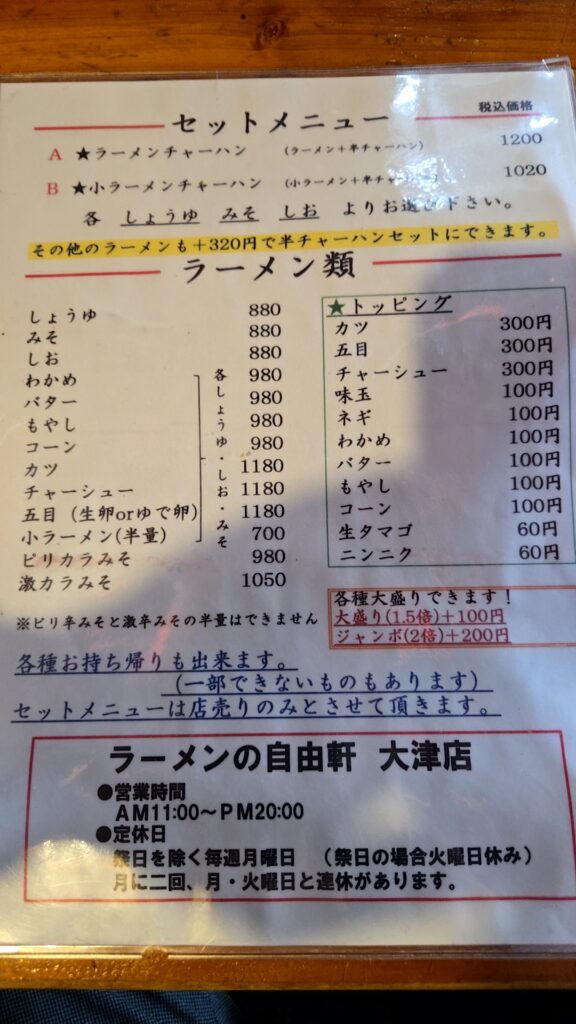 税込価格
セットメニュー
A ★ラーメンチャーハン (ラーメン+半チャーハン) 1200
B ★小ラーメンチャーハン (小ラーメン+半チャーハン) 1020
各 しょうゆ みそ しお よりお選び下さい。
その他のラーメンも+320円で半チャーハンセットにできます。
ラーメン類
しょうゆ 880
みそ 880
しお 880
わかめ 980
バター 980
もやし 980
コーン 980
カツ 1180
チャーシュー 1180
五目(生卵orゆで卵) 1180
小ラーメン(半量) 700
各しょうゆ・しお・みそ
ピリカラみそ 980
激カラみそ 1050
※ピリ辛みそと激辛みその半量はできません
★トッピング
カツ 300円
五目 300円
チャーシュー 300円
味玉 100円
ネギ 100円
わかめ 100円
バター 100円
もやし 100円
コーン 100円
生タマゴ 60円
ニンニク 60円
各種大盛りできます!
大盛り(1.5倍)+100円
ジャンボ(2倍)+200円
各種お持ち帰りも出来ます。
(一部できないものもあります)
セットメニューは店売りのみとさせて頂きます。
ラーメンの自由軒 大津店
●営業時間
AM11:00〜PM20:00
●定休日
祭日を除く毎週月曜日 (祭日の場合火曜日休み)
月に二回、月・火曜日と連休があります。